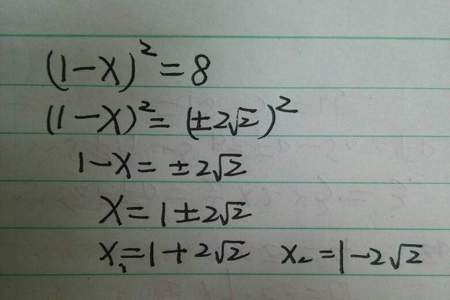 (1-x)²=8
(1-x)²=(±2√2)²
1-x=±2√2
x=1±2√2
x₁=1+2√2 x₂=1-2√2